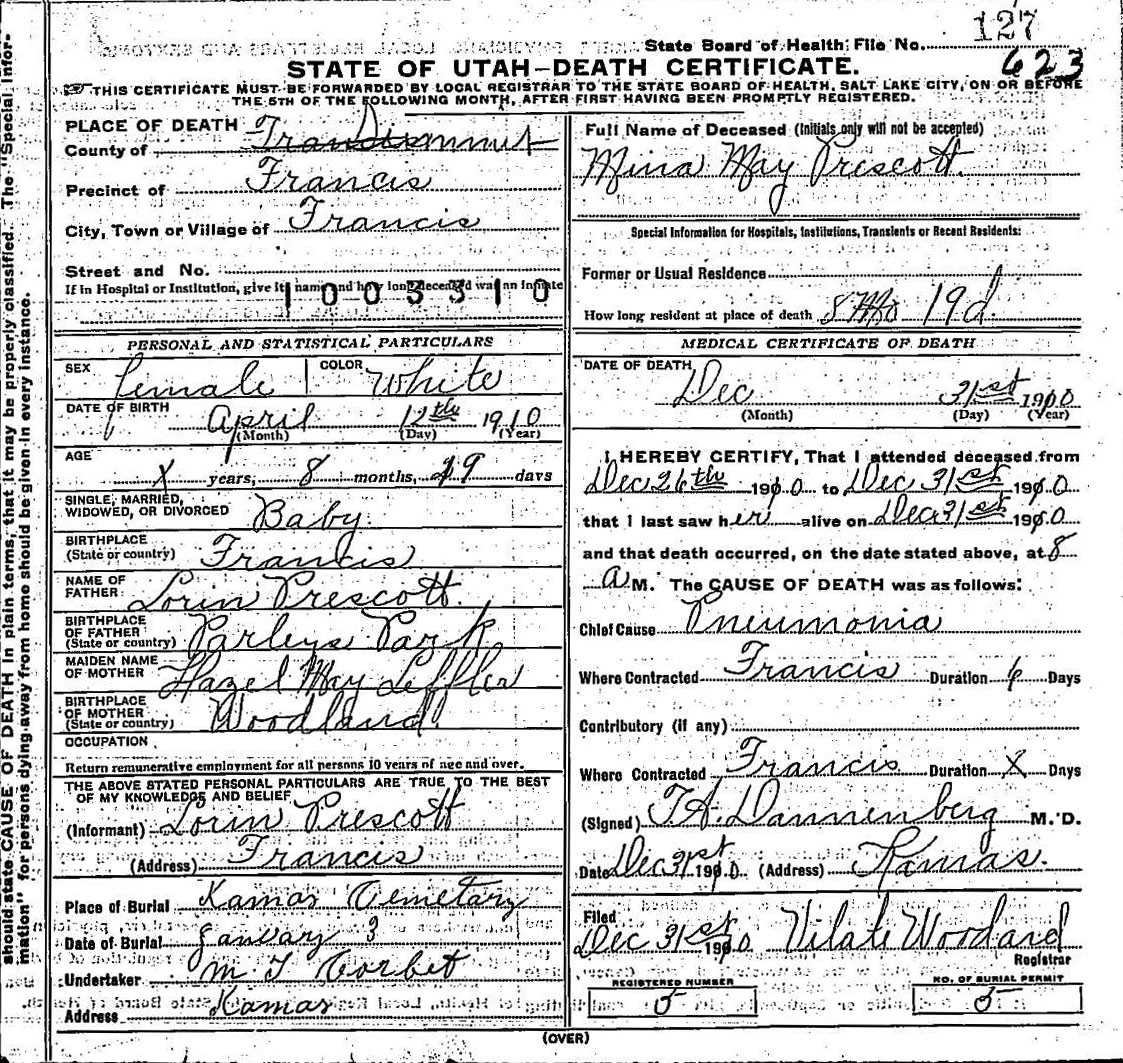 127
State Board of Health File No. 623
STATE OF UTAH—DEATH CERTIFICATE.
THIS CERTIFICATE MUST BE FORWARDED BY LOCAL REGISTRAR TO THE STATE BOARD OF HEALTH, SALT LAKE CITY, ON OR BEFORE
THE 5TH OF THE FOLLOWING MONTH, AFTER FIRST HAVING BEEN PROMPTLY REGISTERED.
should state CAUSE OF DEATH in plain terms, that it may be properly classified. The "Special Infor-
mation" for persons dying away from home should be given in every instance.
PLACE OF DEATH
County of Summit
Precinct of Francis
City, Town or Village of Francis
Street and No.
If in Hospital or Institution, give its name and how long deceased was an inmate
1003310
PERSONAL AND STATISTICAL PARTICULARS
SEX female COLOR White
DATE OF BIRTH April 12th 1910
(Month) (Day) (Year)
AGE X years, 8 months, 19 days
SINGLE, MARRIED,
WIDOWED, OR DIVORCED Baby
BIRTHPLACE
(State or country) Francis
NAME OF
FATHER Lorin Prescott
BIRTHPLACE
OF FATHER
(State or country) Parleys Park
MAIDEN NAME
OF MOTHER Hazel May Leffler
BIRTHPLACE
OF MOTHER
(State or country) Woodland
OCCUPATION
Return remunerative employment for all persons 10 years of age and over.
THE ABOVE STATED PERSONAL PARTICULARS ARE TRUE TO THE BEST
OF MY KNOWLEDGE AND BELIEF
(Informant) Lorin Prescott
(Address) Francis
Place of Burial Kamas Cemetary
Date of Burial January 3
Undertaker M. T Corbet
Address Kamas
Full Name of Deceased (Initials only will not be accepted)
Mina May Prescott.
Special Information for Hospitals, Institutions, Transients or Recent Residents:
Former or Usual Residence
How long resident at place of death 8 Mo 19d.
MEDICAL CERTIFICATE OF DEATH
DATE OF DEATH
Dec 31st 1910
(Month) (Day) (Year)
I HEREBY CERTIFY, That I attended deceased from
Dec 26th 1910 to Dec 31st 1910
that I last saw her alive on Dec 31st 1910
and that death occurred, on the date stated above, at 8
A M. The CAUSE OF DEATH was as follows:
Chief Cause Pneumonia
Where Contracted Francis Duration 6 Days
Contributory (if any)
Where Contracted Francis Duration X Days
(Signed) T.A. Dannenberg M.D.
Date Dec 31st 1910. (Address) Kamas.
Filed
Dec 31st 1910 Vilate Woodard
Registrar
REGISTERED NUMBER NO. OF BURIAL PERMIT
5 5
(OVER)